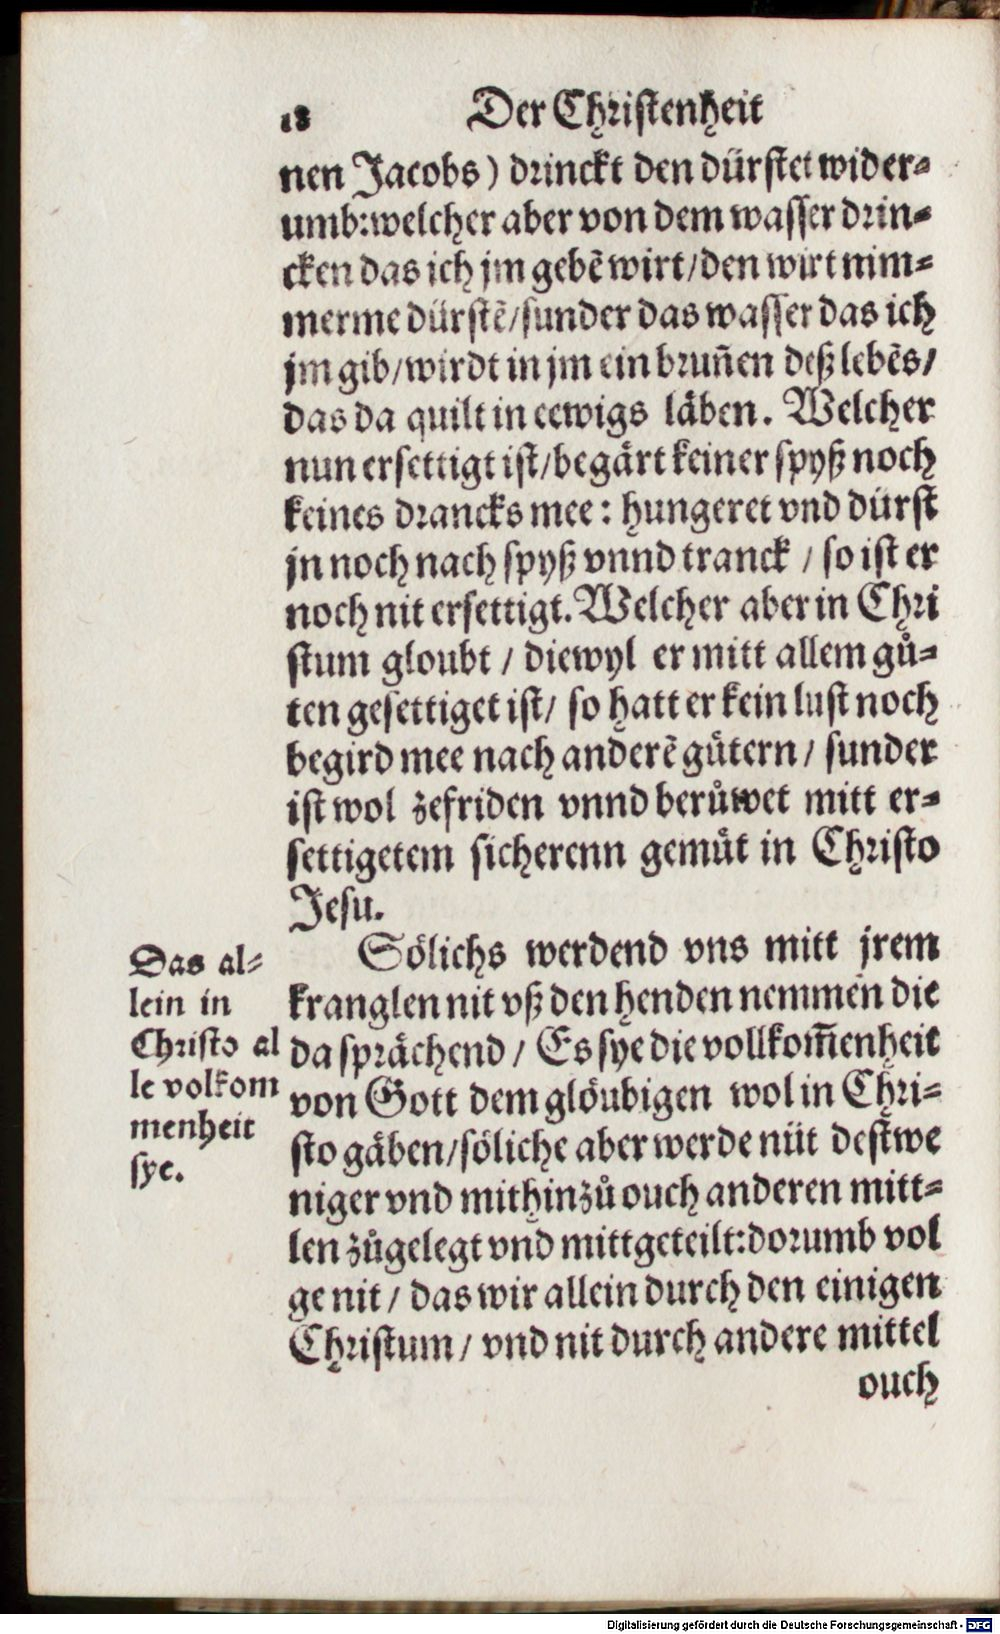 18 Der Christenheit
nen Jacobs) drinckt den dürstet wider⸗
umb:welcher aber von dem wasser drin⸗
cken das ich jm gebẽ wirt/den wirt nim⸗
merme dürstẽ/sunder das wasser das ich
jm gib/wirdt in jm ein brun̄en deß lebẽs/
das da quilt in eewigs läben. Welcher
nun ersettigt ist/begärt keiner spyß noch
keines drancks mee: hungeret vnd dürst
jn noch nach spyß vnnd tranck / so ist er
noch nit ersettigt. Welcher aber in Chri
stum gloubt / diewyl er mitt allem gů⸗
ten gesettiget ist/ so hatt er kein lust noch
begird mee nach anderẽ gütern / sunder
ist wol zefriden vnnd berůwet mitt er⸗
settigetem sicherenn gemüt in Christo
Jesu.
Sölichs werdend vns mitt jrem
kranglen nit vß den henden nemmen die
da sprächend / Es sye die vollkom̄enheit
von Gott dem glöubigen wol in Chri⸗
sto gäben/söliche aber werde nüt destwe
niger vnd mithinzů ouch anderen mitt⸗
len zůgelegt vnd mittgeteilt:dorumb vol
ge nit / das wir allein durch den einigen
Christum / vnd nit durch andere mittel
ouch
Das al⸗
lein in
Christo al
le volkom
menheit
sye.
Digitalisierung gefördert durch die Deutsche Forschungsgemeinschaft - DFG